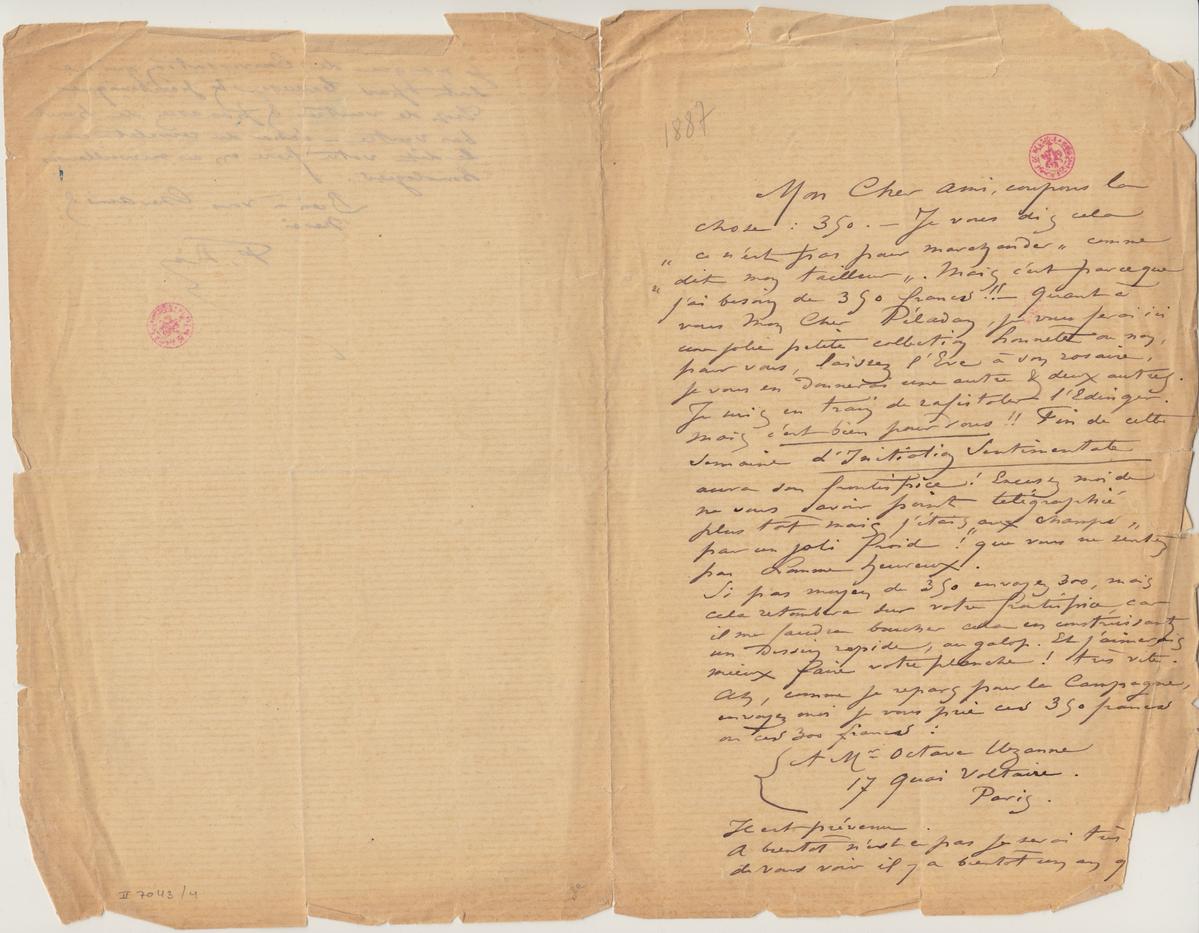 1887
Mon Cher Ami, coupons la
chose : 350. — Je vous dis cela
„ ce n'est pas pour marchander „ comme
„ dit mon tailleur „. Mais c'est parceque
j'ai besoin de 350 francs !!— Quant à
vous Mon Cher Péladan, je vous ferai ici
une jolie petite collection honnête ou non,
pour vous, laissez l'Eve à son rosaire,
je vous en donnerai une autre & deux autres.
Je suis en train de rafistoler l'Edinger.
mais c'est bien pour vous !! Fin de cette
semaine d'Initiation Sentimentale
aura son frontispice ! Excusez moi de
ne vous avoir point télégraphié
plus tôt mais j'étais aux champs „
par un joli froid ! que vous ne sentez
pas homme heureux !
Si pas moyen de 350 envoyez 300, mais
cela retombera sur votre frontispice, car
il me faudra boucher cela en construisant
un dessin rapide, au galop. Et j'aimerais
mieux faire votre planche ! très vite.
Ah, comme je repars pour la Campagne,
envoyez moi je vous prie ces 350 francs
ou ces 300 francs :
A Mr Octave Uzanne
17 Quai Voltaire.
Paris.
Il est prévenu.
A bientôt n'est ce pas je serai très
de vous voir il y a bientôt un an q
II 7043/4